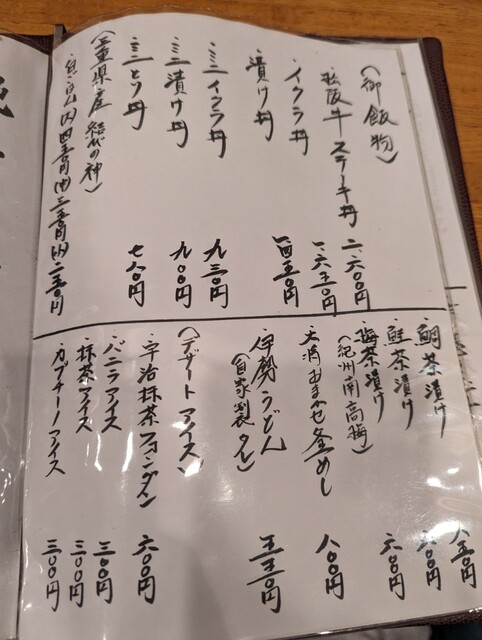 （御飯物）
松阪牛ステーキ丼 二、六〇〇円
イクラ丼 一、六五〇円
漬け丼
ミニイクラ丼 九三〇円
ミニ漬け丼 九〇〇円
ミニとり丼 七八〇円
（三重県産 結びの神）
鯛茶漬け 八五〇円
鮭茶漬け 六〇〇円
梅茶漬け 六〇〇円
（紀州南高梅）
おまかせ釜めし 八〇〇円
伊勢うどん 五五〇円
（自家製タレ）
（デザートアイス）
宇治抹茶フォンダン 六〇〇円
バニラアイス 三〇〇円
抹茶アイス 三〇〇円
カプチーノアイス 三〇〇円